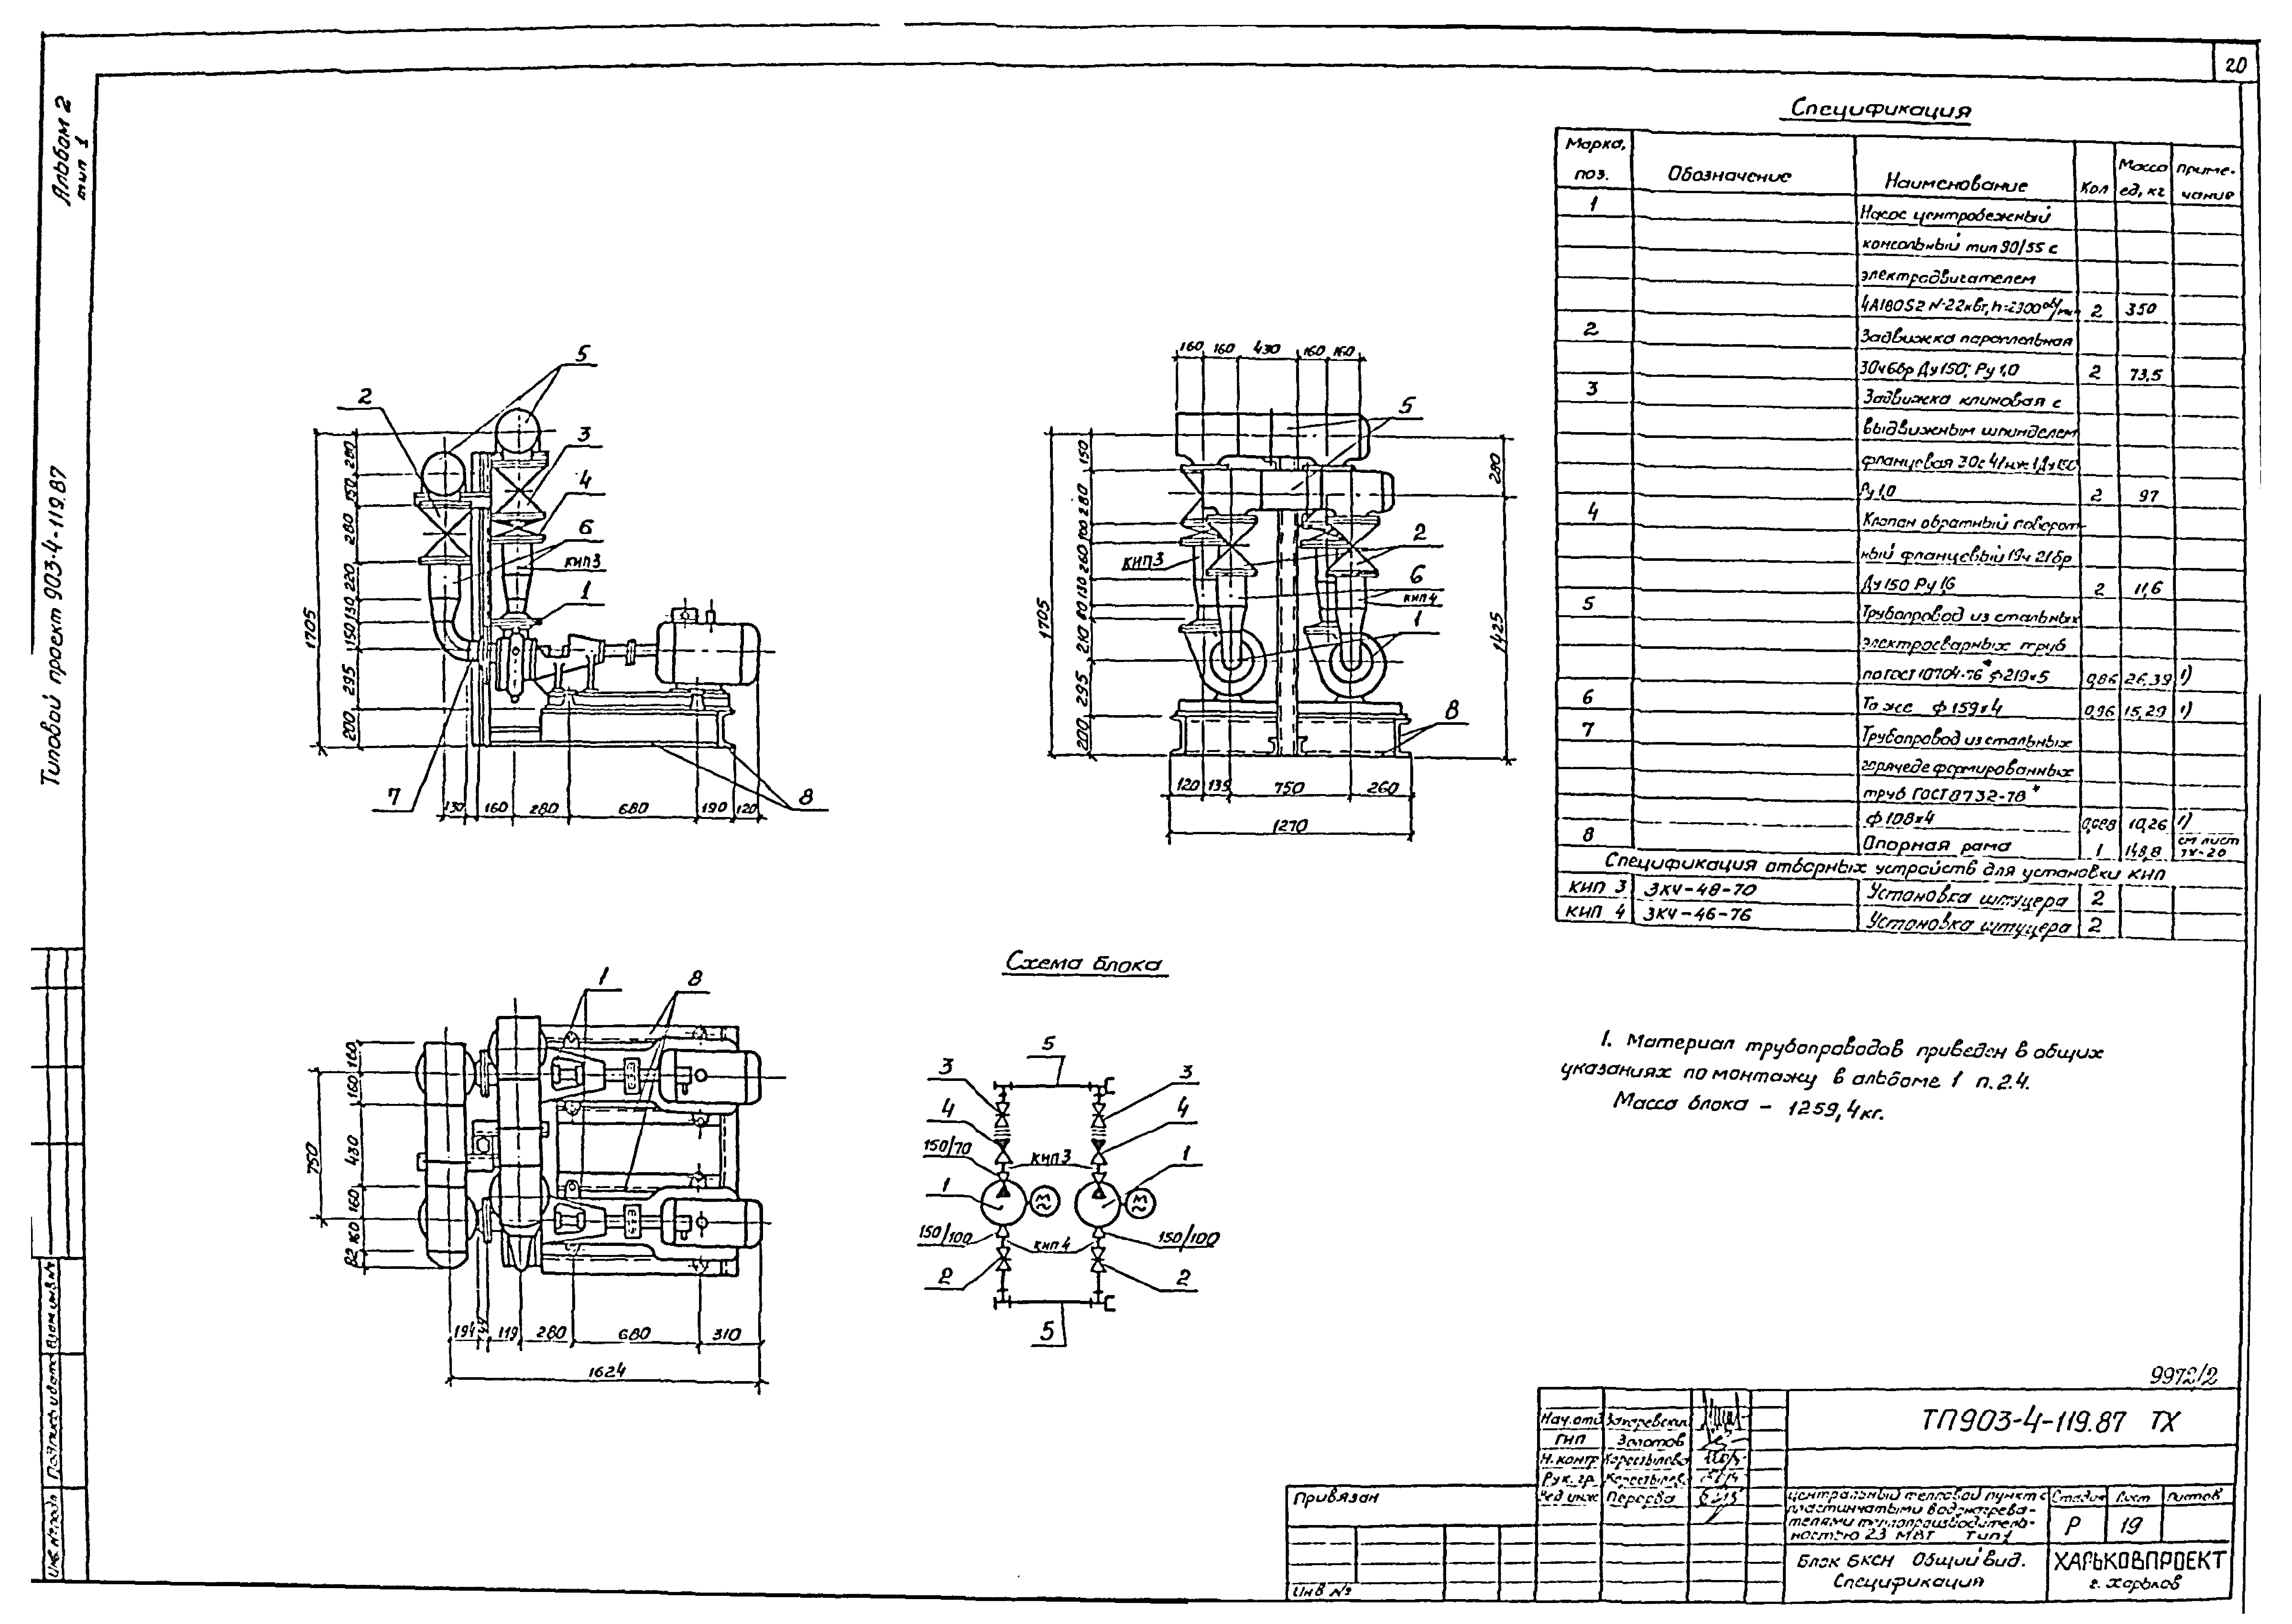 20
Альбом 2
тип 1
Типовой проект 903-4-119.87
Спецификация
Марка, поз. Обозначение Наименование Кол Масса ед, кг Примечание
1 Насос центробежный
консольный тип 90/55 с
электродвигателем
4А180S2 N-22кВт, 2 350
2 Задвижка параллельная
30ч6бр Ду150; Ру 1,0 2 73,5
3 Задвижка клиновая с
выдвижным шпинделем
фланцевая
Ру 1,0 2 97
4 Клапан обратный поворот-
ный фланцевый 19ч 21бр
Ду 150 Ру 1,6 2 11,6
5 Трубопровод из стальных
электросварных труб
по ГОСТ 10704-76* ф 219х5 0,86 26,39 1)
6 То же ф 159х4 0,96 15,29 1)
7 Трубопровод из стальных
горячедеформированных
труб ГОСТ 8732-78*
ф 108х4 0,088 10,26 1)
8 Опорная рама 1 148,8 см лист ТХ-20
Спецификация отборных устройств для установки КИП
КИП 3 ЗКЧ-48-70 Установка штуцера 2
КИП 4 ЗКЧ-46-76 Установка штуцера 2
5
2
3
4
6
КИП3
1
7
8
1705
280
150
280
220
130
150
295
200
130 160 280 680 190 120
160 160 430 160 160
5
2
6
КИП3
КИП4
1
8
1705
150
280
100
260
130
80
210
295
200
280
1425
120 135 750 260
1270
1 8
750
160
160
430
160
160
82
194 119 280 680 310
1624
Схема блока
5
3 3
4 4
150/70 КИП3
1 1
М М
150/100 КИП4 150/100
2 2
5
1. Материал трубопроводов приведен в общих
указаниях по монтажу в альбоме 1 п.2.4.
Масса блока - 1259,4кг.
9972/2
ТП903-4-119.87 ТХ
Нач.отд
ГИП Золотов
Н.контр Коростылева
Рук. гр.
Вед инж Перерва
Центральный тепловой пункт с
пластинчатыми водонагрева-
телями теплопроизводитель-
ностью 23 МВт Тип 1
Стадия Лист Листов
Р 19
Блок БКСН Общий вид.
Спецификация
ХАРЬКОВПРОЕКТ
г. Харьков
Привязан
Инв №
Взам инв.№
Подпись и дата
Инв №подл